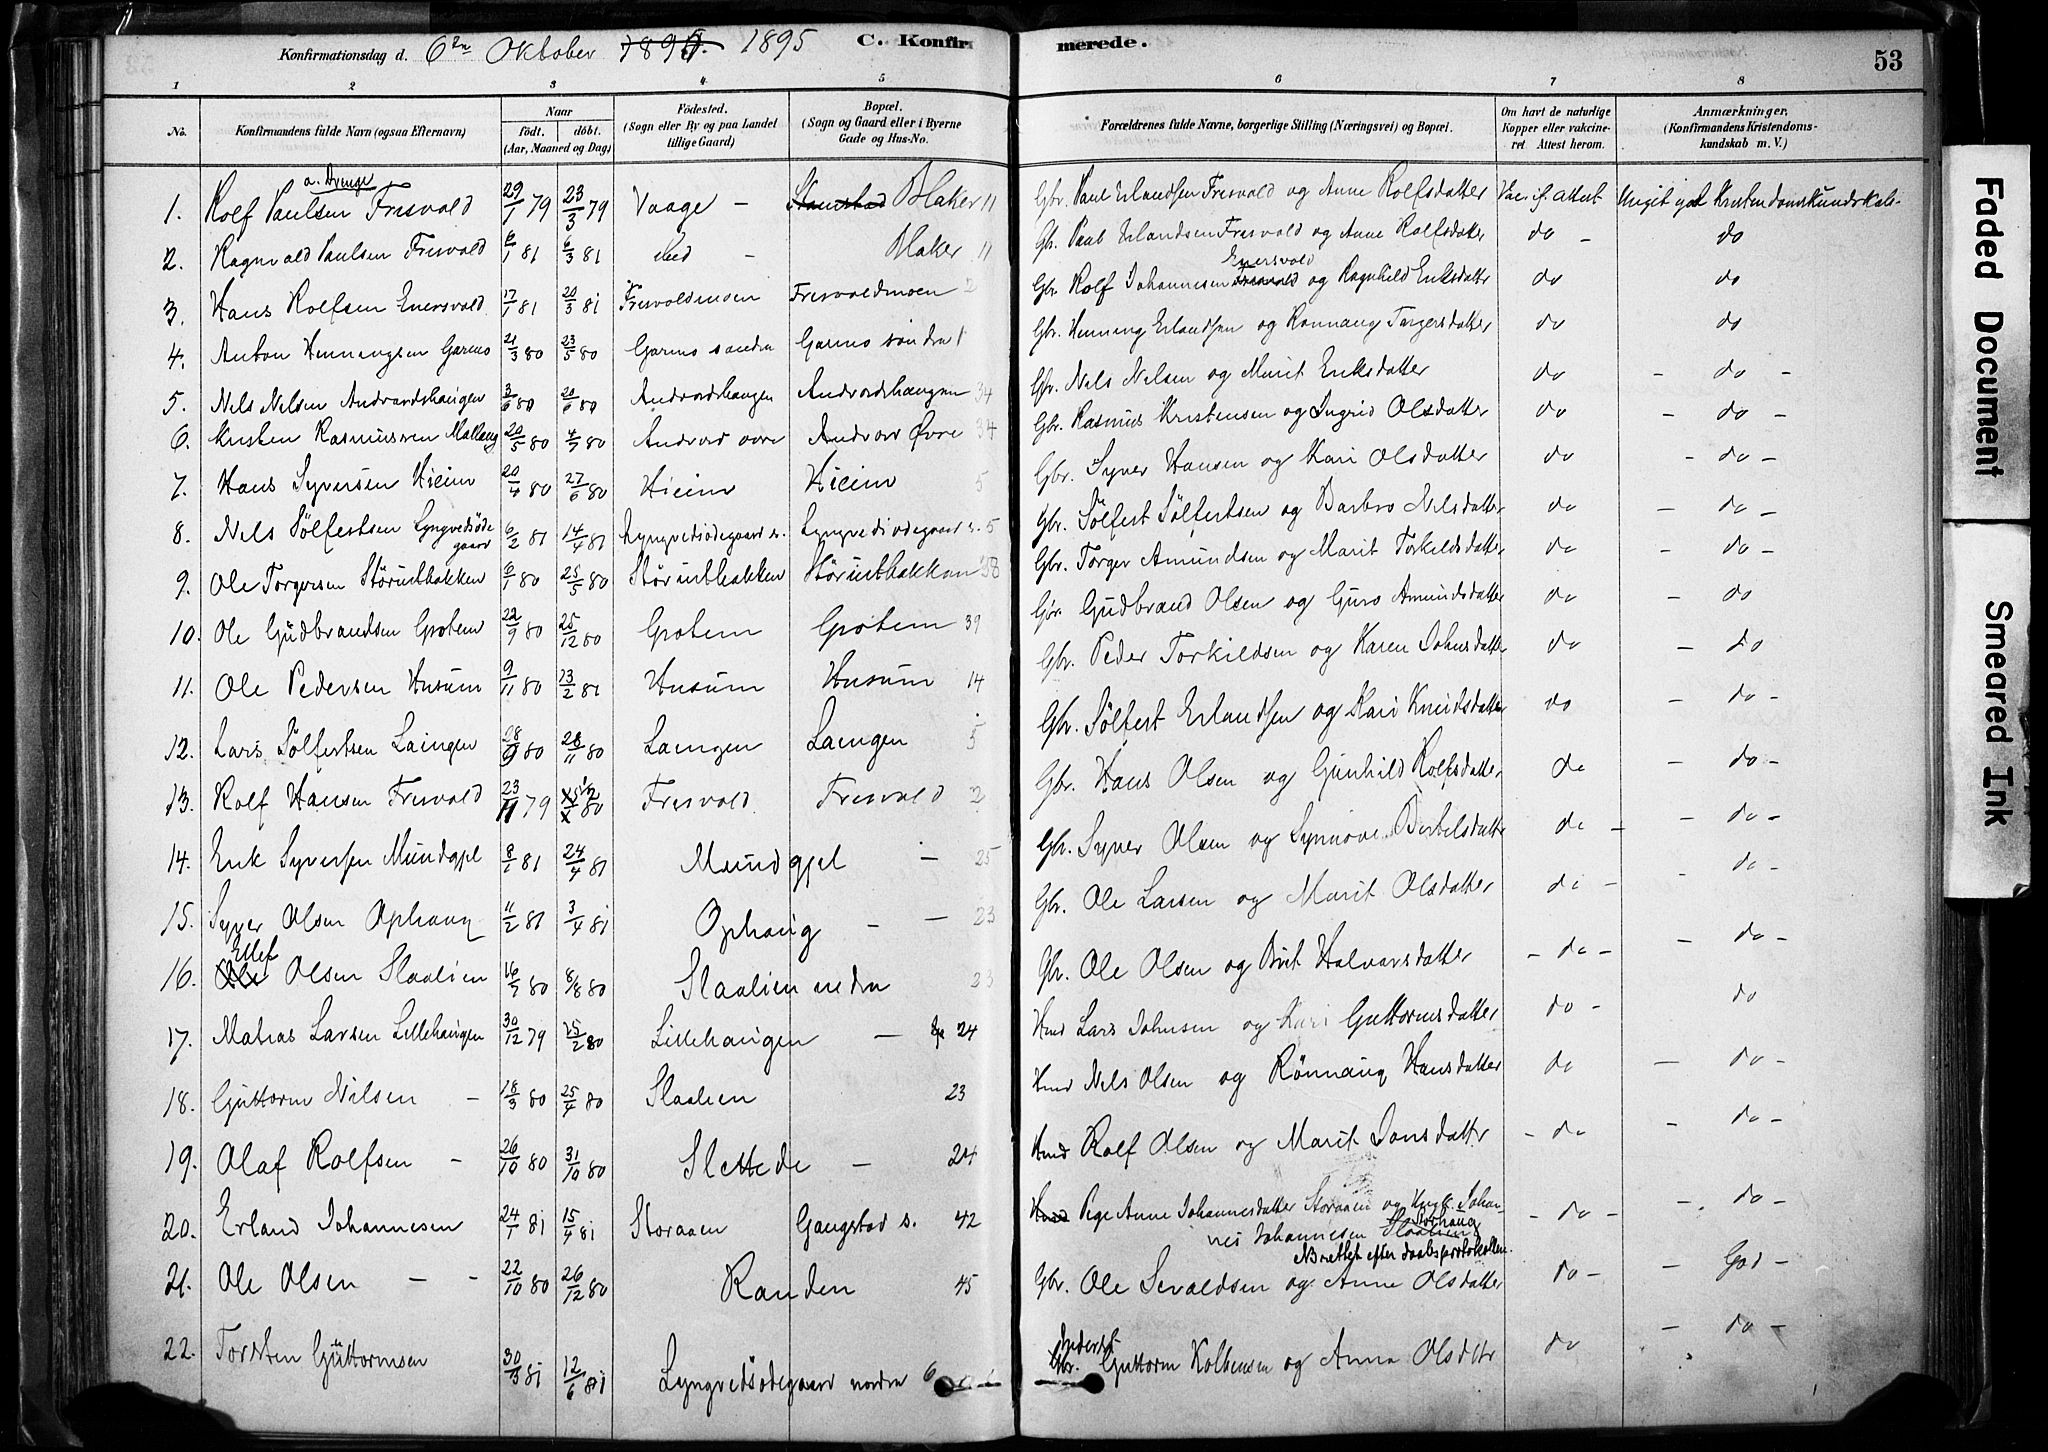 Konfirmationsdag d. 6te Oktober 1895. 1895 C. Konfirmerede. 53
1 2 3 4 5 6 7 8
No. Konfirmandens fulde Navn (ogsaa Efternavn) Naar født. døbt. (Aar, Maaned og Dag) Fødested. (Sogn eller By og paa Landet tillige Gaard) Bopæl. (Sogn og Gaard eller i Byerne Gade og Hus-No. Forældrenes fulde Navne, borgerlige Stilling (Næringsvei) og Bopæl. Om havt de naturlige Kopper eller vakcineret. Attest herom. Anmærkninger, (Konfirmandens Kristendomskundskab m. V.)
a. Drenge
1. Rolf Paulsen Fresvold 29/1 79 23/3 79 Vaage - Blaker 11 Gbr. Paul Erlandsen Fresvold og Anne Rolfsdatter Vac. if. attest Meget god Kristendomskundskab.
2. Ragnvald Paulsen Fresvold 6/1 81 6/3 81 - Blaker 11 Gbr. Paul Erlandsen Fresvold og Anne Rolfsdatter do - do
3. Hans Rolfsen Enersvold 17/1 81 20/3 81 Fresvoldmoen Fresvoldmoen 2 Gbr. Rolf Johannesen Enersvold og Ragnhild Eriksdatter do do
4. Anton Henningsen Garmo 21/3 80 23/5 80 Garmo søndre Garmo søndre 1 Gbr. Henning Erlandsen og Rønnaug Torgersdatter do do
5. Nels Nelsen Andvordshaugen 3/6 80 20/6 80 Andvordshaugen Andvordshaugen 34 Gbr. Nels Nelsen og Marit Eriksdatter do - do -
6. Kristen Rasmussen 20/5 80 4/7 80 Andvord øvre Andvord Øvre 34 Gbr. Rasmus Kristensen og Ingrid Olsdatter do - do -
7. Hans Syversen Hieim 20/4 80 27/6 80 Hieim Hieim 5 Gbr. Syver Hansen og Kari Olsdatter do - do -
8. Nels Sølfestsen Lyngvedsødegaard 6/2 81 14/4 81 Lyngvedsødegaard s. Lyngvedsødegaard s. 5 Gbr. Sølfest Sølfestsen og Barbro Nelsdatter do - do -
9. Ole Torgersen Størustbakken 6/1 80 25/5 80 Størustbakken Størustbakken 38 Gbr. Torger Amundsen og Marit Torkildsdatter do - do -
10. Ole Gudbrandsen Grotem 22/9 80 25/12 80 Grotem Grotem 39 Gbr. Gudbrand Olsen og Guro Amundsdatter do - do
11. Ole Pedersen Husum 9/11 80 23/2 81 Husum Husum 14 Gbr. Peder Torkildsen og Karen Johnsdatter do - do
12. Lars Sølfestsen Laingen 28/9 80 28/11 80 Laingen Laingen 5 Gbr. Sølfest Erlandsen og Kari Knudsdatter do - do -
13. Rolf Hansen Fresvold 23/11 79 80 Fresvold Fresvold 2 Gbr. Hans Olsen og Gunhild Rolfsdatter do - do -
14. Erik Syversen Mundgjel 8/1 81 24/4 81 Mundgjel - 25 Gbr. Syver Olsen og Synnøve do - - do -
15. Syver Olsen Ophaug 11/2 81 3/4 81 Ophaug - - 23 Gbr. Ole Larsen og Marit Olsdatter do - - do -
16. Ellef Olsen Slaalien 16/7 80 8/8 80 Slaalien nedre 23 Gbr. Ole Olsen og Brit Halvarsdatter - do - - do -
17. Matias Larsen Lillehaugen 30/12 79 25/2 80 Lillehaugen - 24 Hmd Lars Johnsen og Kari Guttormsdatter do - do
18. Guttorm Nilsen - 18/3 80 25/4 80 Slaalien 23 Hmd Nels Olsen og Rønnaug Hansdatter do - do -
19. Olaf Rolfsen - 26/10 80 31/10 80 Slettede - 24 Hmd Rolf Olsen og Marit Jonsdattr - do - do -
20. Erland Johannesen 24/1 81 15/4 81 Storaaen Gangstad s. 42 Hmd Pige Anne Johannesdatter Storaaen og Ungk. Johannes Johannesen Slaalien Storhaug - do - - do -
NB rettet efter daabsprotokollen.
21. Ole Olsen - - 22/10 80 26/12 80 Randen 45 Gbr. Ole Sevaldsen og Anne Olsdatter do - - God -
22. Torsten Guttormsen 30/3 81 12/6 81 Lyngvedsødegaard nordre 6 Gbr. Inderst Guttorm Kolbensen og Anna Olsdtr do - do -
Faded Document
Smeared Ink